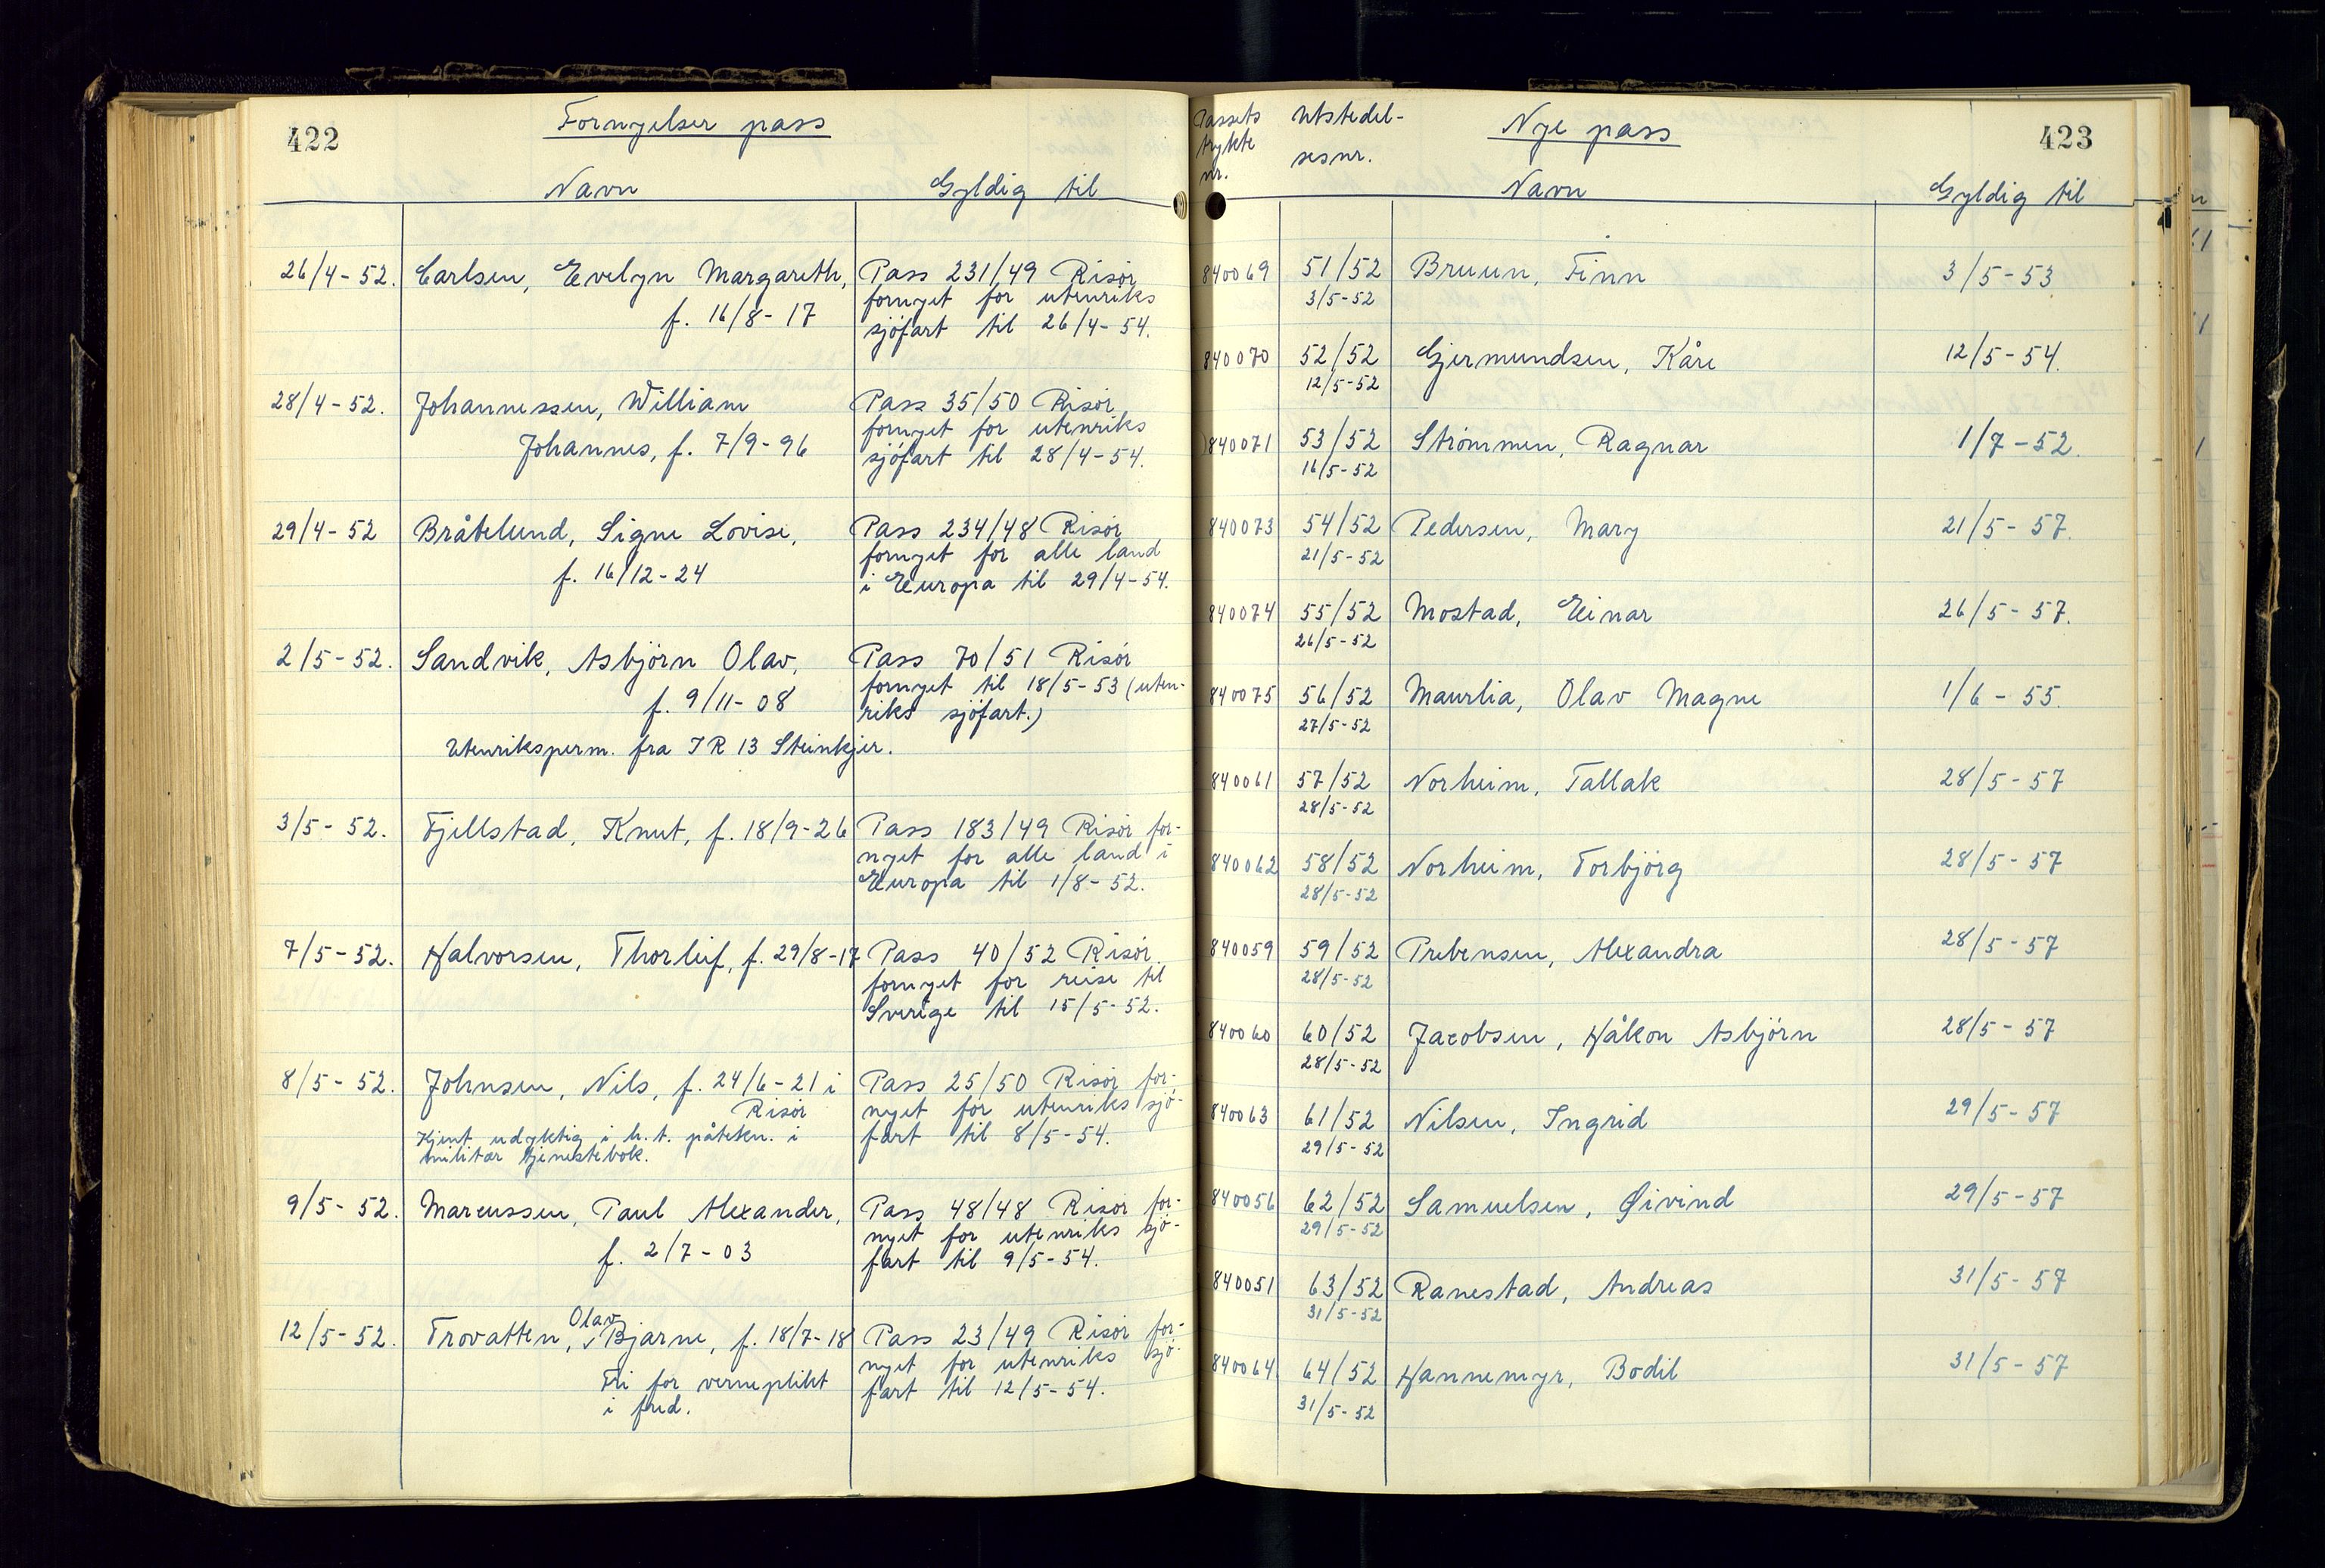 422
Fornyelser pass
Navn
Gyldig til
26/4-52. Carlsen, Evelyn Margareth, Pass 231/49 Risør
fornyet for utenriks
f. 16/8-17
sjøfart til 26/4-54.
28/4-52. Johannessen, William Pass 35/50 Risør
fornyet for utenriks
Johannes, f. 7/9-96
sjøfart til 28/4-54.
29/4-52 Bråtelund, Signe Lovise, Pass 234/48 Risør
fornyet for alle land
f. 16/12-24
i Europa til 29/4-54.
2/5-52. Sandvik, Asbjørn Olav, Pass 70/51 Risør
fornyet til 18/5-53 (uten-
f. 9/11-08
riks sjøfart.)
Utenriksperm. fra IR 13 Steinkjer.
3/5-52. Fjellstad, Knut, f. 18/9-26 Pass 183/49 Risør for-
nyet for alle land i
Europa til 1/8-52.
7/5-52. Halvorsen, Thorleif, f. 29/8-17 Pass 40/52 Risør
fornyet for reise til
Sverige til 15/5-52.
8/5-52. Johnsen, Nils, f. 24/6-21 i Pass 25/50 Risør for-
Risør
nyet for utenriks sjø-
Kjent udyktig i h.t. påtekn. i
fart til 8/5-54.
militær tjenestebok.
9/5-52. Marcussen, Paul Alexander, Pass 48/48 Risør for-
nyet for utenriks sjø-
f. 2/7-03
fart til 9/5-54.
Olav
12/5-52. Trovatten, Bjarne, f. 18/7-18 Pass 23/49 Risør for-
nyet for utenriks sjø-
Fri for verneplikt
fart til 12/5-54.
i fred.
Passets
trykte
nr.
Utstedel-
sesnr.
Nye pass
423
Navn
Gyldig til
840069 51/52 Bruun, Finn 3/5-53
3/5-52
840070 52/52 Gjermundsen, Kåre 12/5-54.
12/5-52
840071 53/52 Strømmen, Ragnar 1/7-52.
16/5-52
840073 54/52 Pedersen, Mary 21/5-57.
21/5-52
840074 55/52 Mostad, Einar 26/5-57.
26/5-52
840075 56/52 Maurlia, Olav Magne 1/6-55.
27/5-52
840061 57/52 Norheim, Tallak 28/5-57
28/5-52
840062 58/52 Norheim, Torbjørg 28/5-57
28/5-52
840059 59/52 Prebensen, Alexandra 28/5-57
28/5-52
840060 60/52 Jacobsen, Håkon Asbjørn 28/5-57
28/5-52
840063 61/52 Nilsen, Ingrid 29/5-57
29/5-52
840056 62/52 Samuelsen, Øivind 29/5-57
29/5-52
840051 63/52 Ranestad, Andreas 31/5-57
31/5-52
840064 64/52 Hannemyr, Bodil 31/5-57
31/5-52